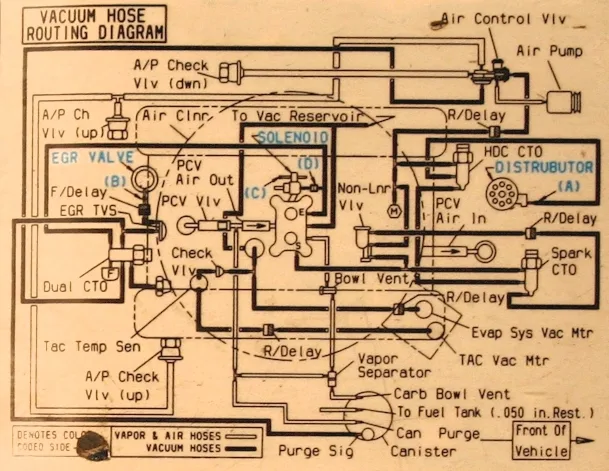 VACUUM HOSE
ROUTING DIAGRAM
Air Control Vlv
Air Pump
A/P Check
Vlv (dwn)
A/P Ch
Vlv (up)
Air Clnr
To Vac Reservoir
R/Delay
HDC CTO
EGR VALVE
(B)
PCV
Air Out
SOLENOID
(D)
(C)
DISTRUBUTOR
(A)
F/Delay
EGR TVS
PCV Vlv
E
Non-Lnr
Vlv
M
PCV
Air In
R/Delay
S
Check
Vlv
F
Dual CTO
Bowl Vent
Spark
CTO
R/Delay
Evap Sys Vac Mtr
Tac Temp Sen
R/Delay
TAC Vac Mtr
A/P Check
Vlv (up)
Vapor
Separator
Carb Bowl Vent
To Fuel Tank (.050 in.Rest.)
Can Purge
Purge Sig
Canister
Front Of
Vehicle
DENOTES COLO
CODED SIDE
VAPOR & AIR HOSES
VACUUM HOSES